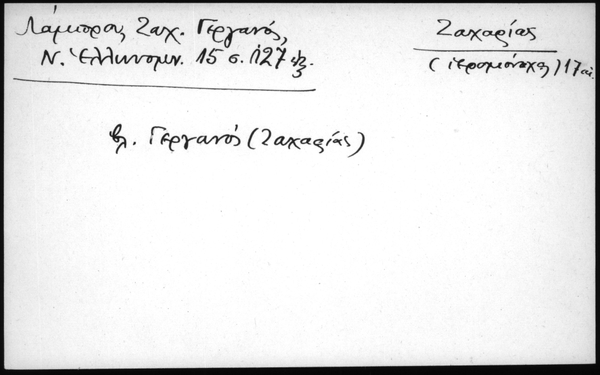 Λάμπρος, Ζαχ. Γεργανός,
Ν. Ἑλληνομν. 15 σ. 127 ἑξ.
Ζαχαρίας
(ἱερομόναχος) 17 αἰ.
βλ. Γεργανός (Ζαχαρίας)